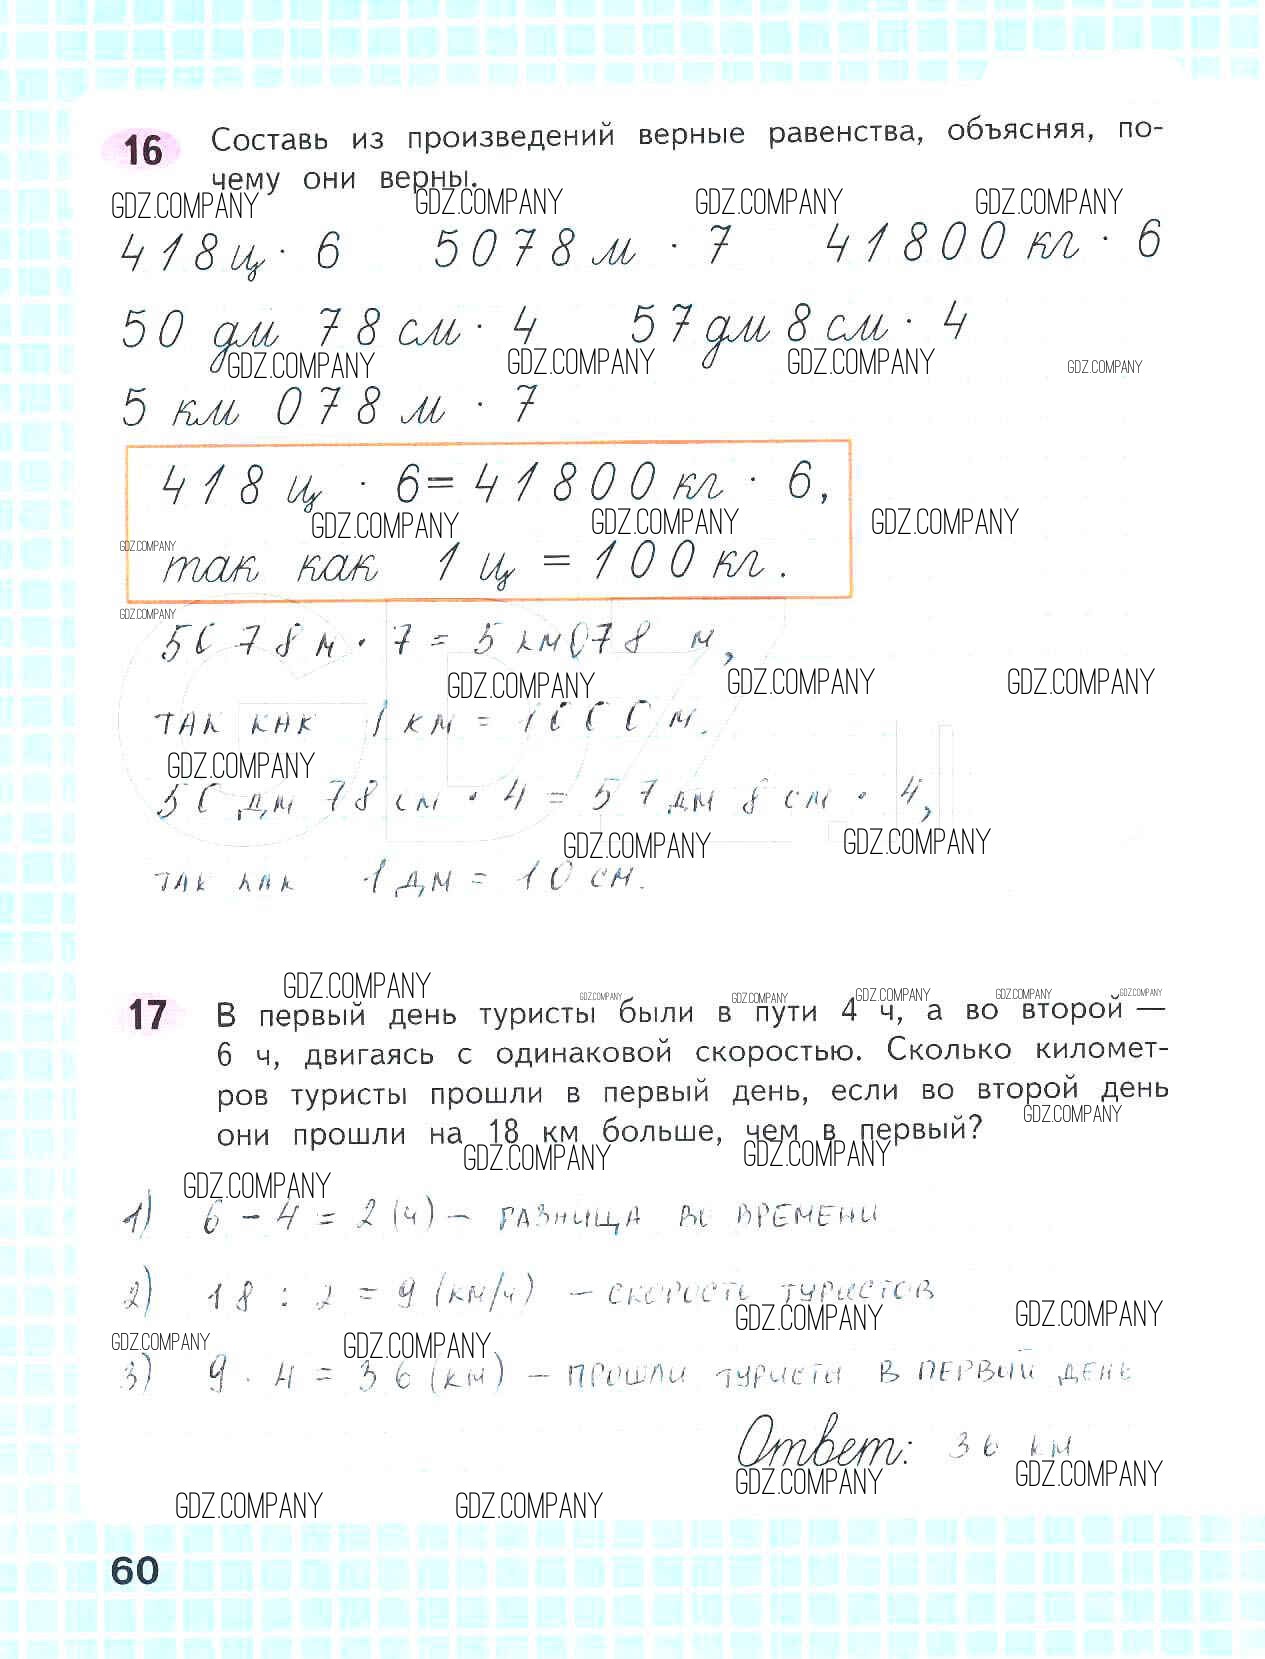 16 Составь из произведений верные равенства, объясняя, по-
чему они верны.
GDZ.COMPANY GDZ.COMPANY GDZ.COMPANY GDZ.COMPANY
418 ц · 6 5078 м · 7 41800 кг · 6
50 дм 78 см · 4 57 дм 8 см · 4
GDZ.COMPANY GDZ.COMPANY GDZ.COMPANY GDZ.COMPANY
5 км 078 м · 7
418 ц · 6 = 41800 кг · 6,
GDZ.COMPANY GDZ.COMPANY GDZ.COMPANY
GDZ.COMPANY
так как 1 ц = 100 кг.
GDZ.COMPANY
5078 м · 7 = 5 км 078 м,
GDZ.COMPANY GDZ.COMPANY GDZ.COMPANY
так как 1 км = 1000 м.
GDZ.COMPANY
50 дм 78 см · 4 = 57 дм 8 см · 4,
GDZ.COMPANY GDZ.COMPANY
так как 1 дм = 10 см.
GDZ.COMPANY GDZ.COMPANY GDZ.COMPANY GDZ.COMPANY GDZ.COMPANY GDZ.COMPANY
17 В первый день туристы были в пути 4 ч, а во второй —
6 ч, двигаясь с одинаковой скоростью. Сколько километ-
ров туристы прошли в первый день, если во второй день
GDZ.COMPANY
они прошли на 18 км больше, чем в первый?
GDZ.COMPANY GDZ.COMPANY
GDZ.COMPANY
1) 6 - 4 = 2 (ч) - разница во времени
2) 18 : 2 = 9 (км/ч) - скорость туристов
GDZ.COMPANY GDZ.COMPANY
GDZ.COMPANY GDZ.COMPANY
3) 9 · 4 = 36 (км) - прошли туристы в первый день
Ответ: 36 км
GDZ.COMPANY GDZ.COMPANY
GDZ.COMPANY GDZ.COMPANY
60